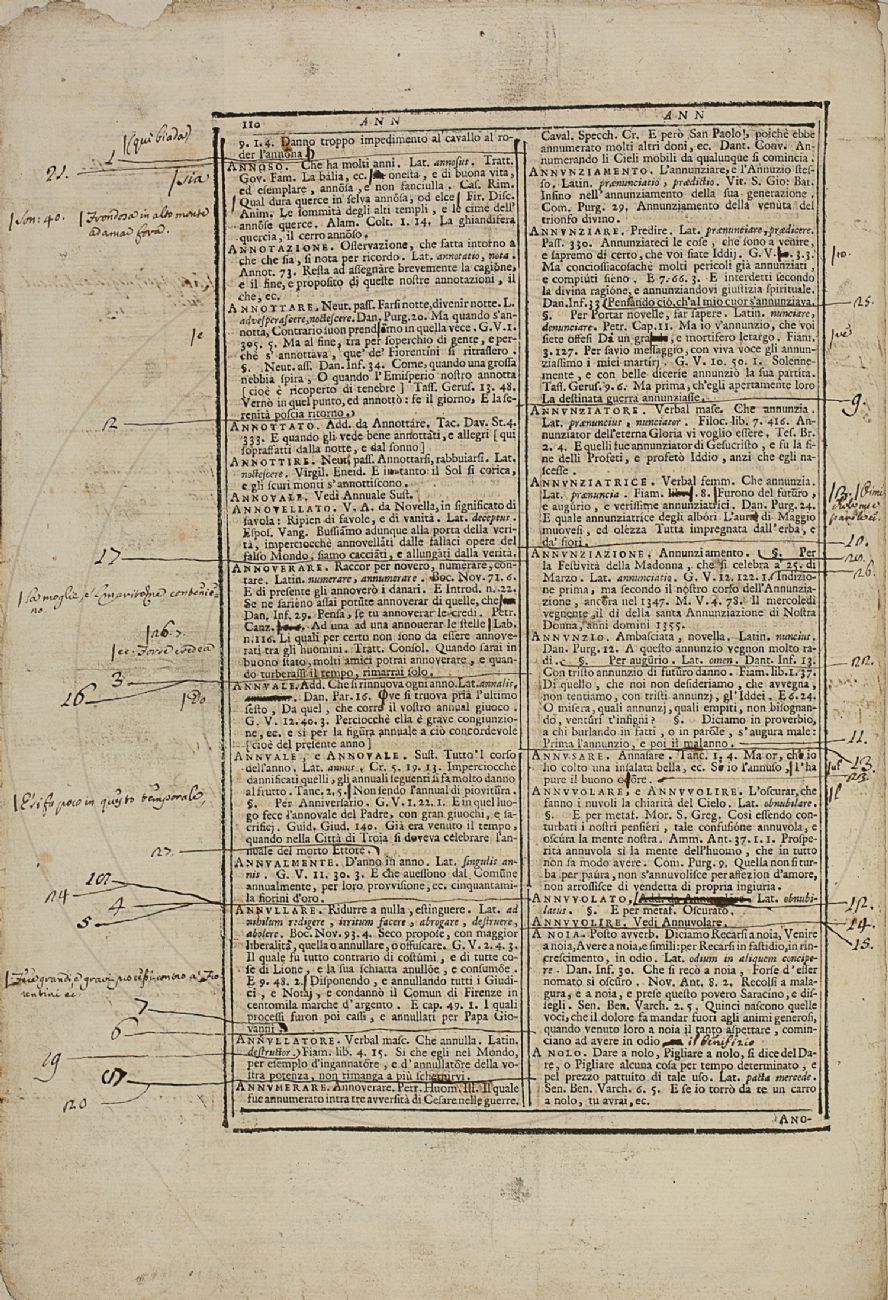 110 ANN
9. 1. 4. Danno troppo impedimento al cavallo al ro-
der l'annona
ANNOSO. Che ha molti anni. Lat. annosus. Tratt.
Gov. Fam. La bália, ec. onesta, e di buona vita,
ed esemplare, annósa, e non fanciulla. Cas. Rim.
Qual dura querce in selva annósa, od elce Fir. Disc.
Anim. Le sommità degli alti templi, e le cime dell'
annóse querce. Alam. Colt. 1. 14. La ghiandifera
quercia, il cerro annóso.
ANNOTAZIONE. Osservazione, che fatta intorno a
che che sia, si nota per ricordo. Lat. annotatio, nota.
Annot. 73. Resta ad assegnare brevemente la cagióne,
e il fine, e proposito di queste nostre annotazioni, il
che, ec.
ANNOTTARE. Neut. pass. Farsi notte, divenir notte. L.
advesperascere, noctescere. Dan. Purg. 20. Ma quando s'an-
notta, Contrario suon prendiamo in quella vece. G. V. 1.
305. 5. Ma al fine, tra per soperchio di gente, e per-
chè s'annottava, que' de' Fiorentini si ritrassero.
§. Neut. ass. Dan. Inf. 34. Come, quando una grossa
nebbia spira, O quando l'Emisperio nostro annotta
[cioè è ricoperto di tenebre] Tass. Gerus. 13. 48.
Vernò in quel punto, ed annottò: fe il giorno, E la se-
renità poscia ritorno.
ANNOTTATO. Add. da Annottáre. Tac. Dav. St. 4.
333. E quando gli vede bene annottati, e allegri [qui
soprassatti dalla notte, e dal sonno]
ANNOTTIRE. Neut. pass. Annottarsi, rabbuiarsi. Lat.
noctescere. Virgil. Eneid. E intanto il Sol si corica,
e gli scuri monti s'annottiscono.
ANNOVALE. Vedi Annuale Sust.
ANNOVELLATO. V. A. da Novella, in significato di
favola: Ripien di favole, e di vanità. Lat. deceptus.
Espos. Vang. Bussiámo adunque alla porta della veri-
tà, imperciocchè annovelláti dalle fallaci opere del
falso Mondo, siamo cacciáti, e allungáti dalla verità.
ANNOVERARE. Raccor per novero, numerare, con-
tare. Latin. numerare, annumerare. Boc. Nov. 71. 6.
E di presente gli annoverò i danari. E Introd. n. 22.
Se ne sarieno assai potúte annoverar di quelle, che
Dan. Inf. 29. Pensa, se tu annoverar le credi. Petr.
Canz. Ad una ad una annouerar le stelle Lab.
n. 116. Li quali per certo non sono da essere annove-
rati tra gli huomini. Tratt. Consol. Quando sarai in
buono stato, molti amici potrai annoverare, e quan-
do turberassi il tempo, rimarrai solo.
ANNVALE. Add. Che si rinnuova ogni anno. Lat. annalis,
Dan. Par. 16. Ove si truova pria l'ultimo
sesto, Da quel, che corre il vostro annual giuoco.
G. V. 12. 40. 3. Perciocchè ella è grave congiunzio-
ne, ec. e si per la figúra annuale a ciò concordevole
[cioè del presente anno]
ANNVALE, e ANNOVALE. Sust. Tutto 'l corso
dell'anno. Lat. annus. Cr. 5. 19. 13. Imperciocchè
dannificati quelli, gli annuali seguenti si fa molto danno
al frutto. Tanc. 2. 5. Non sendo l'annual di piovitúra.
§. Per Anniversario. G. V. 1. 22. 1. E in quel luo-
go fece l'annovale del Padre, con gran giuochi, e sa-
crificj. Guid. Giud. 140. Già era venuto il tempo,
quando nella Città di Troia si doveva celebrare l'an-
nuale del morto Ettore
ANNVALMENTE. D'anno in anno. Lat. singulis an-
nis. G. V. 11. 30. 3. E che avessono dal Comúne
annualmente, per loro provvisione, ec. cinquantami-
la fiorini d'oro.
ANNVLLARE. Ridurre a nulla, estinguere. Lat. ad
nihilum redigere, irritum facere, abrogare, destruere,
abolere. Boc. Nov. 93. 4. Seco propose, con maggior
liberalità, quella o annullare, o offuscare. G. V. 2. 4. 3.
Il quale fu tutto contrario di costúmi, e di tutte co-
se di Lione, e la sua schiatta anullóe, e consumóe.
E 9. 48. 2. Disponendo, e annullando tutti i Giudi-
ci, e Notaj, e condannò il Comun di Firenze in
centomila marche d'argento. E cap. 49. 1. I quali
processi furon poi cassi, e annullati per Papa Gio-
vanni
ANNVLLATORE. Verbal masc. Che annulla. Latin.
destructor, Fiam. lib. 4. 15. Si che egli nel Mondo,
per esempio d'ingannatóre, e d'annullatóre della vo-
stra potenza, non rimanga a più schernirvi.
ANNVMERARE. Annoverare. Petr. Huom. Ill. Il quale
fue annumerato intra tre avversità di Cesare nelle guerre.
ANN
Caval. Specch. Cr. E però San Paolo, poichè ebbe
annumerato molti altri doni, ec. Dant. Conv. An-
numerando li Cieli mobili da qualunque si comincia.
ANNVNZIAMENTO. L'annunziare, e l'Annuzio stes-
so. Latin. prænunciatio, prædictio. Vit. S. Gio: Bat.
Insino nell'annunziamento della sua generazione.
Com. Purg. 29. Annunziamento della venuta del
trionfo divino.
ANNVNZIARE. Predire. Lat. prænunciare, prædicere.
Pass. 330. Annunziateci le cose, che sono a venire,
e sapremo di certo, che voi siate Iddij. G. V. 3. 3.
Ma conciossiacosachè molti pericoli già annunziati,
e compiúti sieno. E 7. 66. 3. E interdetti secondo
la divina ragióne, e annunziandovi giustizia spirituale.
Dan. Inf. 33 Pensando ciò, ch'al mio cuor s'annunziava.
§. Per Portar novelle, far sapere. Latin. nunciare,
denunciare. Petr. Cap. 11. Ma io v'annunzio, che voi
siete offesi Da un grave, e mortifero letargo. Fiam.
3. 127. Per savio messaggio, con viva voce gli annun-
ziassimo i miei martirj. G. V. 10. 50. 1. Solenne-
mente, e con belle dicerie annunziò la sua partita.
Tass. Gerus. 9. 6. Ma prima, ch'egli apertamente loro
La destinata guerra annunziasse.
ANNVNZIATORE. Verbal masc. Che annunzia.
Lat. prænuncius, nunciator. Filoc. lib. 7. 416. An-
nunziator dell'eterna Gloria vi voglio essere. Tes. Br.
2. 4. E quelli fue annunziator di Gesucristo, e fu la fi-
ne delli Profeti, e profetò Iddio, anzi che egli na-
scesse.
ANNVNZIATRICE. Verbal femm. Che annunzia.
Lat. prænuncia. Fiam. 8. Furono del futúro,
e augúrio, e verissime annunziatrici. Dan. Purg. 24.
E quale annunziatrice degli albóri L'aura di Maggio
muovesi, ed olézza Tutta impregnata dall'erba, e
da' fiori.
ANNVNZIAZIONE. Annunziamento. §. Per
la Festività della Madonna, che si celebra a' 25. di
Marzo. Lat. annunciatio. G. V. 12. 122. 1. Indizio-
ne prima, ma secondo il nostro corso dell'Annunzia-
zione, ancóra nel 1347. M. V. 4. 78. Il mercoledì
vegnente il dì della santa Annunziazione di Nostra
Donna, anni domini 1355.
ANNVNZIO. Ambasciata, novella. Latin. nuncius.
Dan. Purg. 12. A questo annunzio vegnon molto ra-
di. §. Per augúrio. Lat. omen. Dant. Inf. 13.
Con tristo annunzio di futúro danno. Fiam. lib. 1. 37.
Di quello, che noi non desideriamo, che avvegna,
non tentiamo, con tristi annunzj, gl'Iddei. E 6. 24.
O misera, quali annunzj, quali empiti, non bisognan-
do, ventúri t'infigni? §. Diciamo in proverbio,
a chi burlando in fatti, o in paróle, s'augura male:
Prima l'annunzio, e poi il malanno.
ANNVSARE. Annasare. Tanc. 1. 4. Ma or, che io
ho colto una insalata bella, ec. Se io l'annuso, l'ha
pure il buono odóre.
ANNVVOLARE, e ANNVVOLIRE. L'oscurar, che
fanno i nuvoli la chiarità del Cielo. Lat. obnubilare.
§. E per metaf. Mor. S. Greg. Così essendo con-
turbati i nostri pensiéri, tale confusióne annuvola, e
oscúra la mente nostra. Amm. Ant. 37. 1. 1. Prospe-
rità annuvola si la mente dell'huomo, che in tutto
non sa modo avere. Com. Purg. 9. Quella non si tur-
ba per paúra, non s'annuvolisce per affezion d'amore,
non arrossisce di vendetta di propria ingiuria.
ANNVVOLATO, Lat. obnubi-
latus. §. E per metaf. Oscurato.
ANNVVOLIRE. Vedi Annuvolare.
A NOIA. Posto avverb. Diciamo Recarsi a noia, Venire
a noia, Avere a noia, e simili: per Recarsi in fastidio, in rin-
crescimento, in odio. Lat. odium in aliquem concipe-
re. Dan. Inf. 30. Che si recò a noia, Forse d'esser
nomato si oscuro. Nov. Ant. 8. 2. Recolsi a mala-
gura, e a noia, e prese questo povero Saracino, e dis-
segli. Sen. Ben. Varch. 2. 5. Quinci nascono quelle
voci, che il dolore fa mandar fuori agli animi generosi,
quando venuto loro a noia il tanto aspettare, comin-
ciano ad avere in odio il benifizio
A NOLO. Dare a nolo, Pigliare a nolo, si dice del Da-
re, o Pigliare alcuna cosa per tempo determinato, e
pel prezzo pattuito di tale uso. Lat. pacta mercede.
Sen. Ben. Varch. 6. 5. E se io torrò da te un carro
a nolo, tu avrai, ec.
ANO-
(qui biada)
1
21.
sia
Son: 40. Frondosa in alto monte
ad amar
e
2
17
26. 7.
3
16
Do
23.
24
4
5
7
6
19
8
20
25.
9.
10.
26.
22.
11.
13.
12.
14.
15.